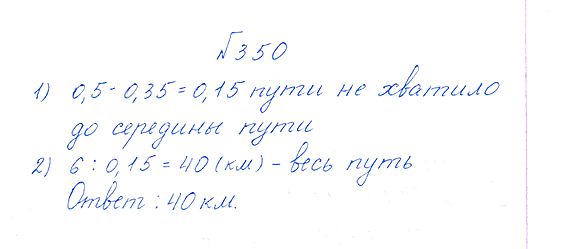 №350
1) 0,5 - 0,35 = 0,15 пути не хватило
до середины пути
2) 6 : 0,15 = 40 (км) - весь путь
Ответ : 40 км.